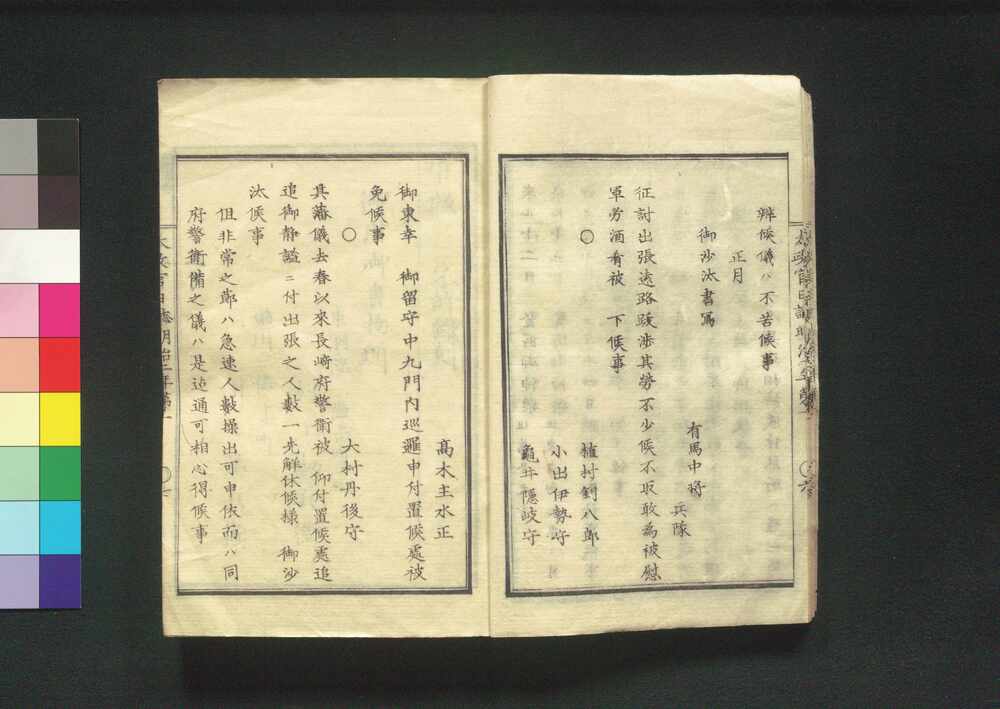 辨候儀ハ不苦候事
正月
御沙汰書寫
有馬中将
兵隊
征討出張遠路跋渉其勞不少候不取敢為被慰
軍労酒肴被　下候事
○
植村釗八郎
小出伊勢守
龜井隠岐守
高木主水正
御東幸　御留守中九門内巡邏申付置候處被
免候事
○
大村丹後守
其藩儀去春以來長崎府警衛被　仰付置候處追
追御静謐ニ付出張之人數一先解休候様　御沙
汰候事
但非常之節ハ急速人數操出可申依而ハ同
府警衛備之儀ハ是迠通可相心得候事